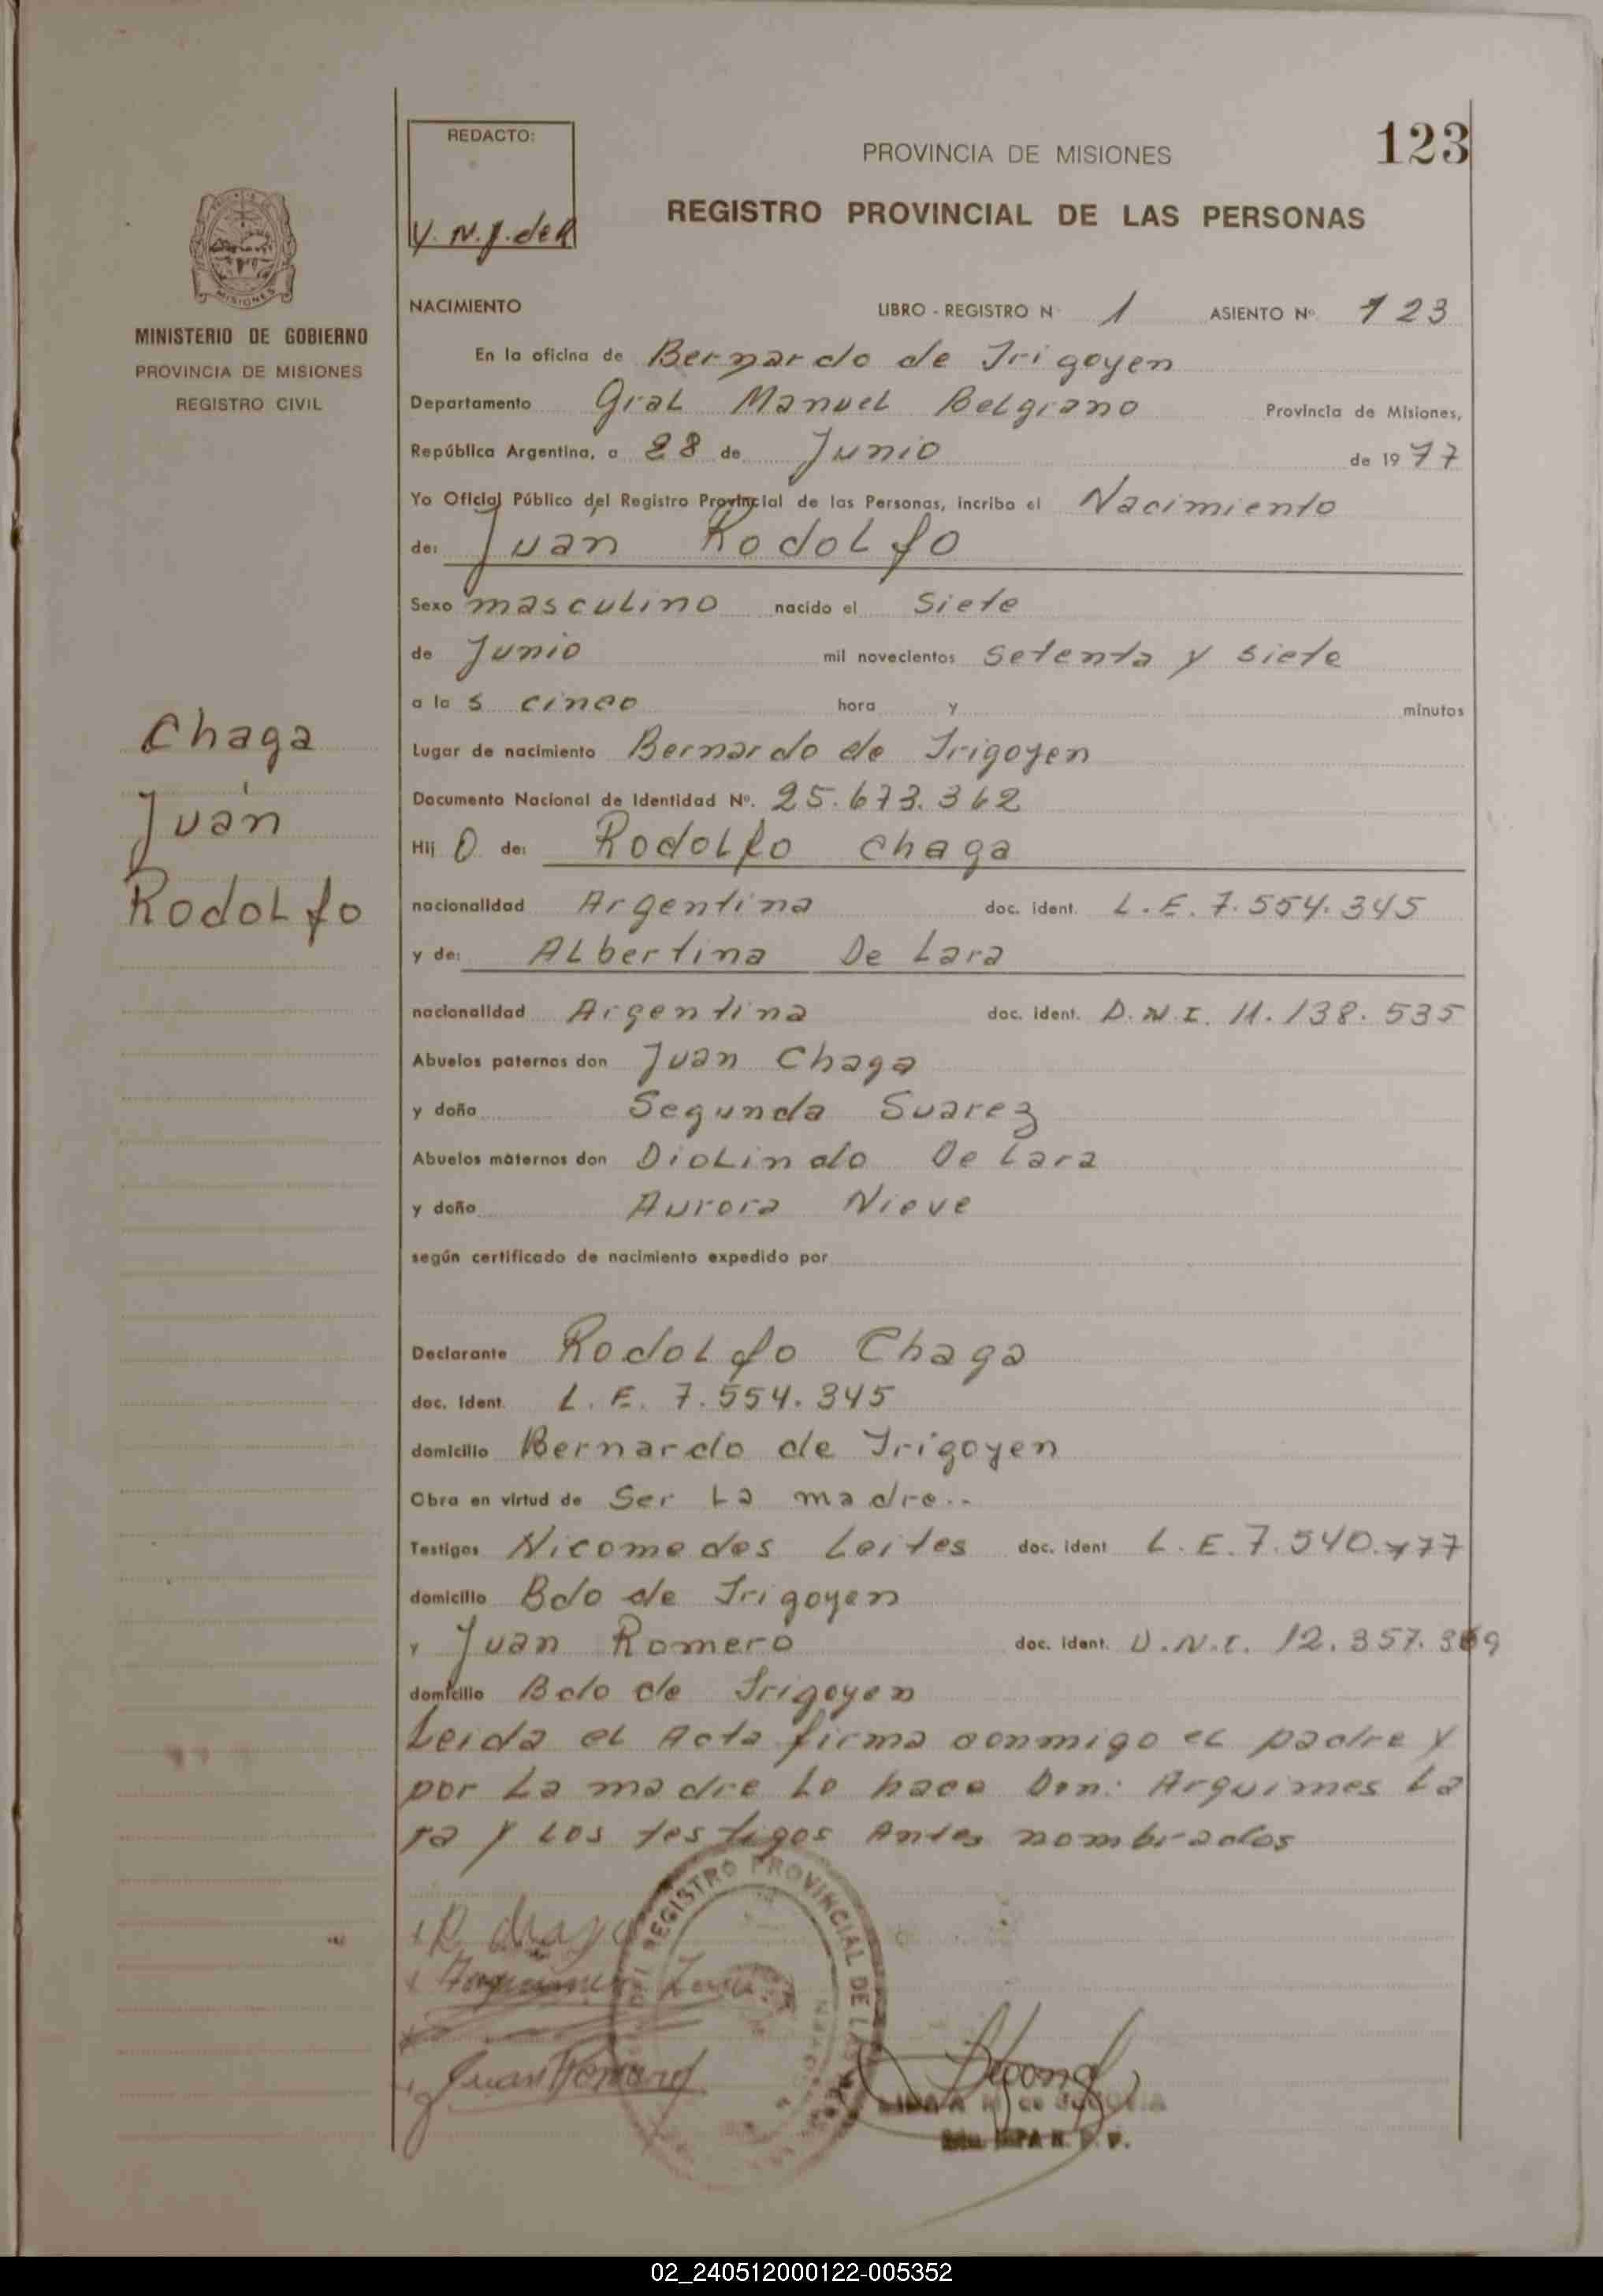 123
REDACTO:
V. N. J. de R
PROVINCIA DE MISIONES
REGISTRO PROVINCIAL DE LAS PERSONAS
MISIONES
MINISTERIO DE GOBIERNO
PROVINCIA DE MISIONES
REGISTRO CIVIL
Chaga
Juan
Rodolfo
NACIMIENTO LIBRO - REGISTRO N 1 ASIENTO Nº 123
En la oficina de Bernardo de Irigoyen
Departamento Gral Manuel Belgrano Provincia de Misiones,
República Argentina, a 28 de Junio de 1977
Yo Oficial Público del Registro Provincial de las Personas, incribo el Nacimiento
de: Juan Rodolfo
Sexo masculino nacido el Siete
de Junio mil novecientos setenta y siete
a las cinco hora y minutos
Lugar de nacimiento Bernardo de Irigoyen
Documento Nacional de Identidad Nº. 25.673.362
Hijo de: Rodolfo Chaga
nacionalidad Argentina doc. ident. L.E. 7.554.345
y de: Albertina De Lara
nacionalidad Argentina doc. ident. D.N.I. 11.138.535
Abuelos paternos don Juan Chaga
y doña Segunda Suarez
Abuelos maternos don Diolindo De Lara
y doña Aurora Nieve
según certificado de nacimiento expedido por
Declarante Rodolfo Chaga
doc. Ident. L.E. 7.554.345
domicilio Bernardo de Irigoyen
Obra en virtud de Ser La madre..
Testigos Nicomedes Leites doc. ident L.E. 7.540.477
domicilio Bdo de Irigoyen
y Juan Romero doc. ident. D.N.I. 12.357.369
domicilio Bdo de Irigoyen
Leida el Acta firma conmigo el padre y
por La madre Lo hace Don: Arquimes La
ra y Los testigos Antes nombrados
R Chaga
Arquimes Lara
Juan Romero
REGISTRO PROVINCIAL DE LAS
02_240512000122-005352